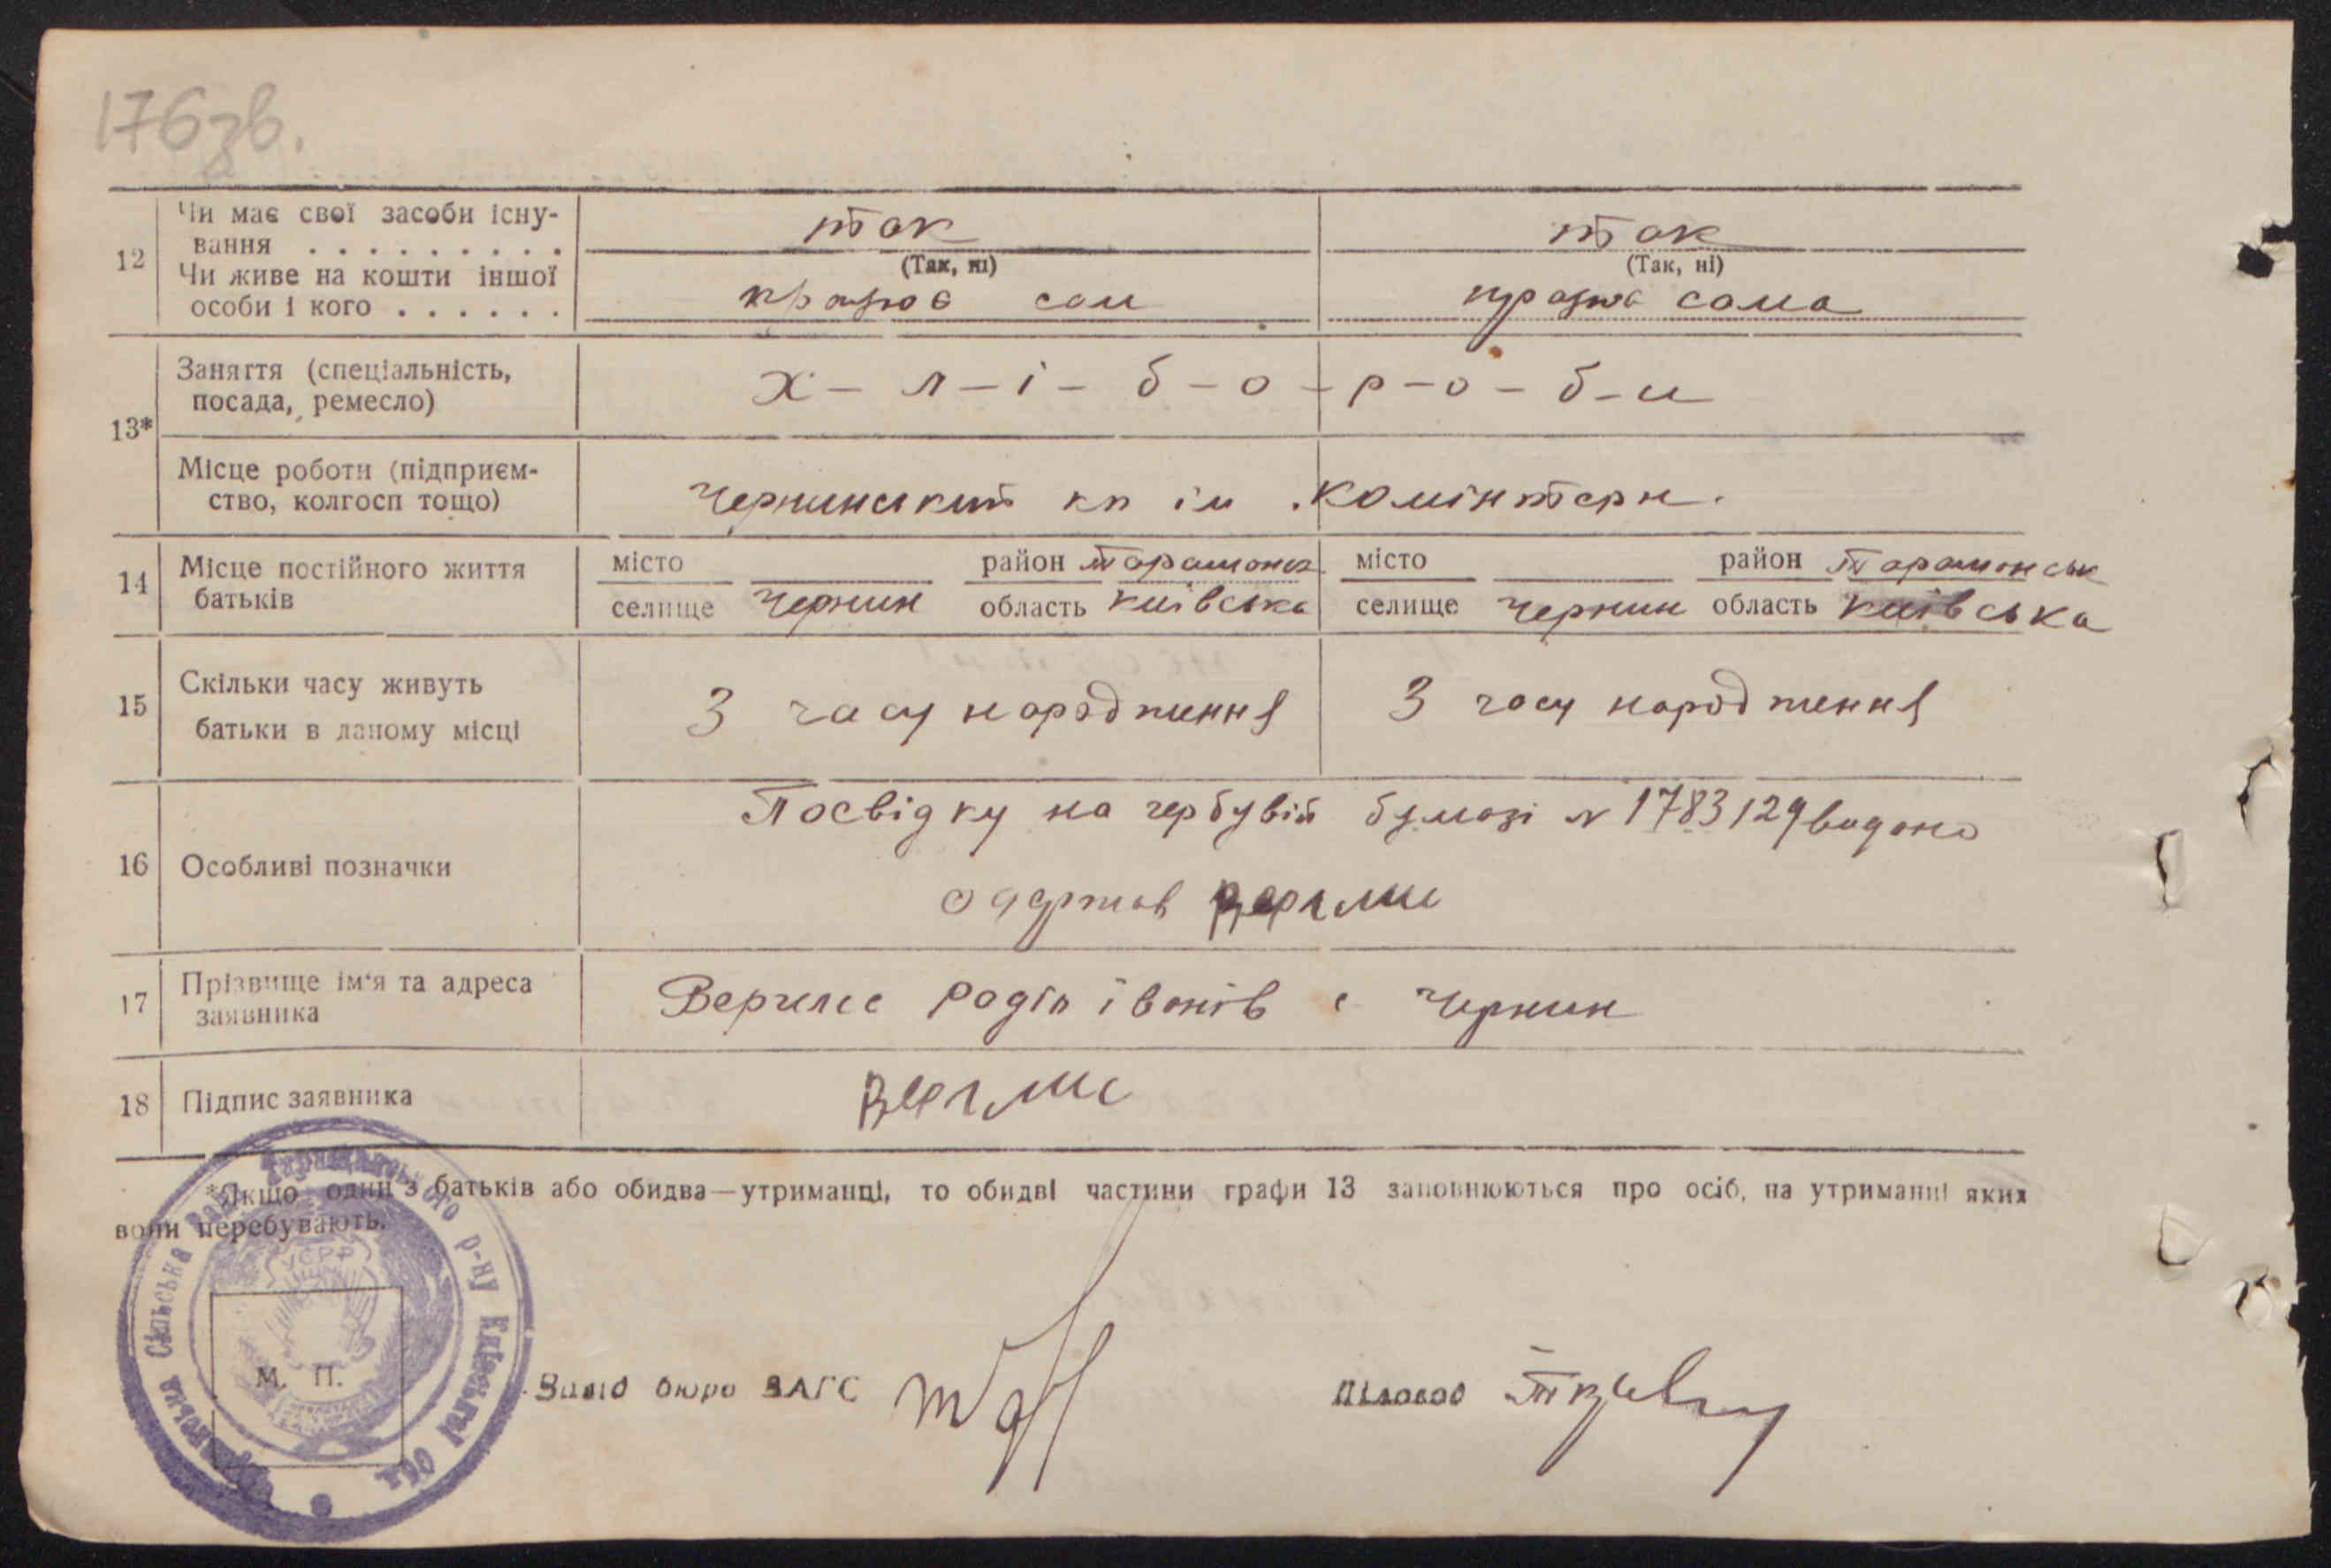 176зв.
12
Чи має свої засоби існу-
вання . . . . . . . . .
Чи живе на кошти іншої
особи і кого . . . . . .
так
(Так, ні)
працює сам
так
(Так, ні)
працює сама
13*
Заняття (спеціальність,
посада, ремесло)
х-л-і-б-о-р-о-б-и
Місце роботи (підприєм-
ство, колгосп тощо)
Чернинський кп ім. Комінтерн.
14
Місце постійного життя
батьків
місто район
селище Чернин область Київська
місто район
селище Чернин область Київська
15
Скільки часу живуть
батьки в даному місці
З часу народження
З часу народження
16
Особливі позначки
Посвідку на гербувій бумазі № 1783129 видано
одержав
17
Прізвище ім'я та адреса
заявника
Родіп Іванів с Чернин
18
Підпис заявника
*Якщо один з батьків або обидва—утриманці, то обидві частини графи 13 заповнюються про осіб, на утриманні яких
вони перебувають.
Сільська Рада Таращанського р-ну Київської Обл.
УСРР
М. П.
Зав бюро ЗАГС
Діловод